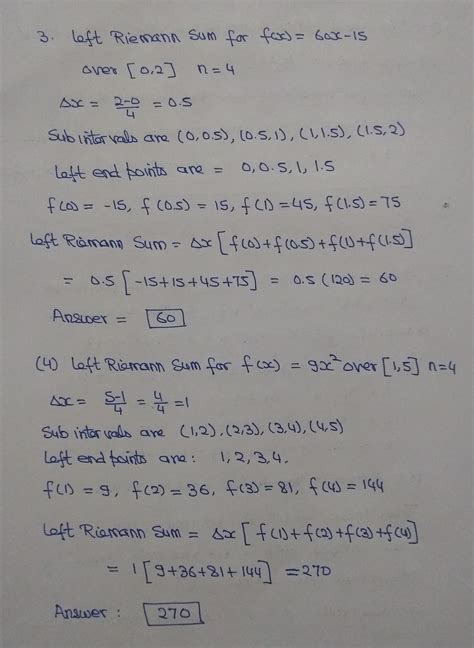 3. Left Riemann Sum for f(x) = 60x-15
over [0,2] n=4
Δx = 2-0/4 = 0.5
Sub intervals are (0,0.5), (0.5,1), (1,1.5), (1.5,2)
Left end points are = 0, 0.5, 1, 1.5
f(0) = -15, f(0.5) = 15, f(1) = 45, f(1.5) = 75
Left Riemann Sum = Δx [f(0)+f(0.5)+f(1)+f(1.5)]
= 0.5 [-15+15+45+75] = 0.5 (120) = 60
Answer = 60
(4) Left Riemann Sum for f(x) = 9x² over [1,5] n=4
Δx = 5-1/4 = 4/4 = 1
Sub intervals are (1,2), (2,3), (3,4), (4,5)
Left end points are: 1, 2, 3, 4.
f(1) = 9, f(2) = 36, f(3) = 81, f(4) = 144
Left Riemann Sum = Δx [f(1)+f(2)+f(3)+f(4)]
= 1 [9+36+81+144] = 270
Answer : 270